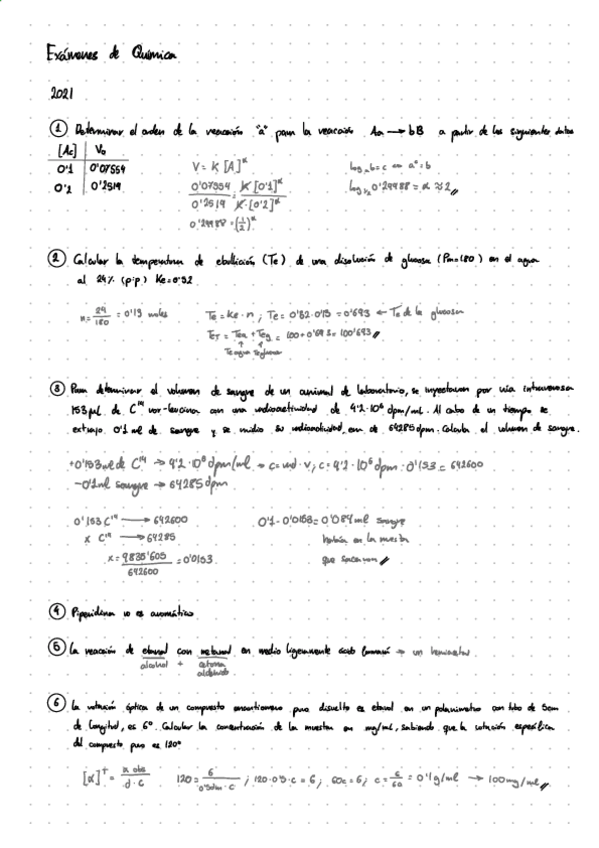 Exámenes de Química
2021
① Determinar el orden de la reacción "a" para la reacción Aa → bB a partir de los siguientes datos
[Ac] | V₀
0'1 | 0'07554
0'2 | 0'2519
V = K [A]^α
0'07554 / 0'2519 = K·[0'1]^α / K·[0'2]^α
0'29988 = (1/2)^α
log_a b = c ⇔ a^c = b
log_1/2 0'29988 = α ≈ 2
② Calcular la temperatura de ebullición (Te) de una disolución de glucosa (Pm=180) en el agua
al 24% (p:p) Ke=0'52
n = 24/180 = 0'13 moles
Te = Ke · n ; Te = 0'52·0'13 = 0'693 ← Te de la glucosa
TeT = Tea + Teg = 100 + 0'693 = 100'693
Te agua Te glucosa
③ Para determinar el volumen de sangre de un animal de laboratorio, se inyectaron por vía intravenosa
153 µl de C¹⁴ nor-leucina con una radioactividad de 4'2·10⁶ dpm/ml. Al cabo de un tiempo se
extrajo 0'1 ml de sangre y se midio su radioactividad, era de 64285 dpm. Calcula el volumen de sangre.
+0'153 ml de C¹⁴ → 4'2·10⁶ dpm/ml → c = nd · v ; c = 4'2·10⁶ dpm · 0'153 = 642600
-0'1 ml sangre → 64285 dpm
0'153 C¹⁴ → 642600
x C¹⁴ → 64285
x = 9835'605 / 642600 = 0'0153
0'1 - 0'0153 = 0'084 ml sangre
había en la muestra
que sacaron
④ Piperidina no es aromático
⑤ La reacción de etanol con metanal en medio ligeramente ácido formará → un hemiacetal
alcohol + cetona
aldehído
⑥ La rotación óptica de un compuesto enantiomero puro disuelto es etanol en un polarimetro con tubo de 5cm
de longitud, es 6°. Calcular la concentración de la muestra en mg/ml, sabiendo que la rotación específica
del compuesto puro es 120°
[α]ᵀ = α obs / d · c
120 = 6 / 0'5dm · c ; 120·0'5·c = 6 ; 60c = 6 ; c = 6/60 = 0'1 g/ml → 100 mg/ml